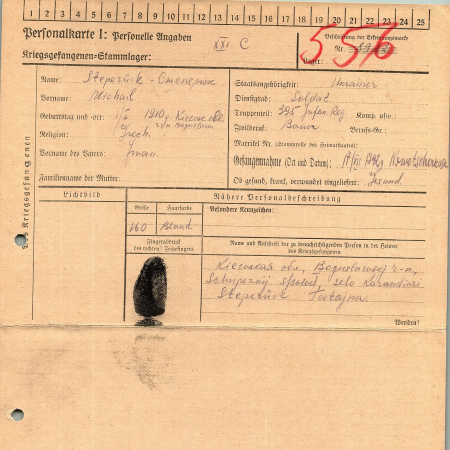 1 2 3 4 5 6 7 8 9 10 11 12 13 14 15 16 17 18 19 20 21 22 23 24 25
Personalkarte I: Personelle Angaben
XXI C
Beschriftung der Erkennungsmarke
Nr.
Kriegsgefangenen=Stammlager:
Lager:
556
Des Kriegsgefangenen
Name: Stepezück - Степерюк
Vorname: Michail
Geburtstag und -ort: 1910
Religion:
Vorname des Vaters: Iwan.
Familienname der Mutter:
Staatsangehörigkeit: Ukrainer
Dienstgrad: Soldat
Truppenteil: 395 Infan. Reg Komp. usw.:
Zivilberuf: Bauer Berufs-Gr.:
Matrikel Nr. (Stammrolle des Heimatstaates):
Gefangennahme (Ort und Datum):
Ob gesund, krank, verwundet eingeliefert: Gesund.
Lichtbild
Nähere Personalbeschreibung
Größe
Haarfarbe
Besondere Kennzeichen:
160
Blond.
Fingerabdruck
des rechten! Zeigefingers
Name und Anschrift der zu benachrichtigenden Person in der Heimat
des Kriegsgefangenen
Kiewskaja obl., Boguslawskij r-n,
selo Karandinzi
Stepezück Tatajna.
Wenden!